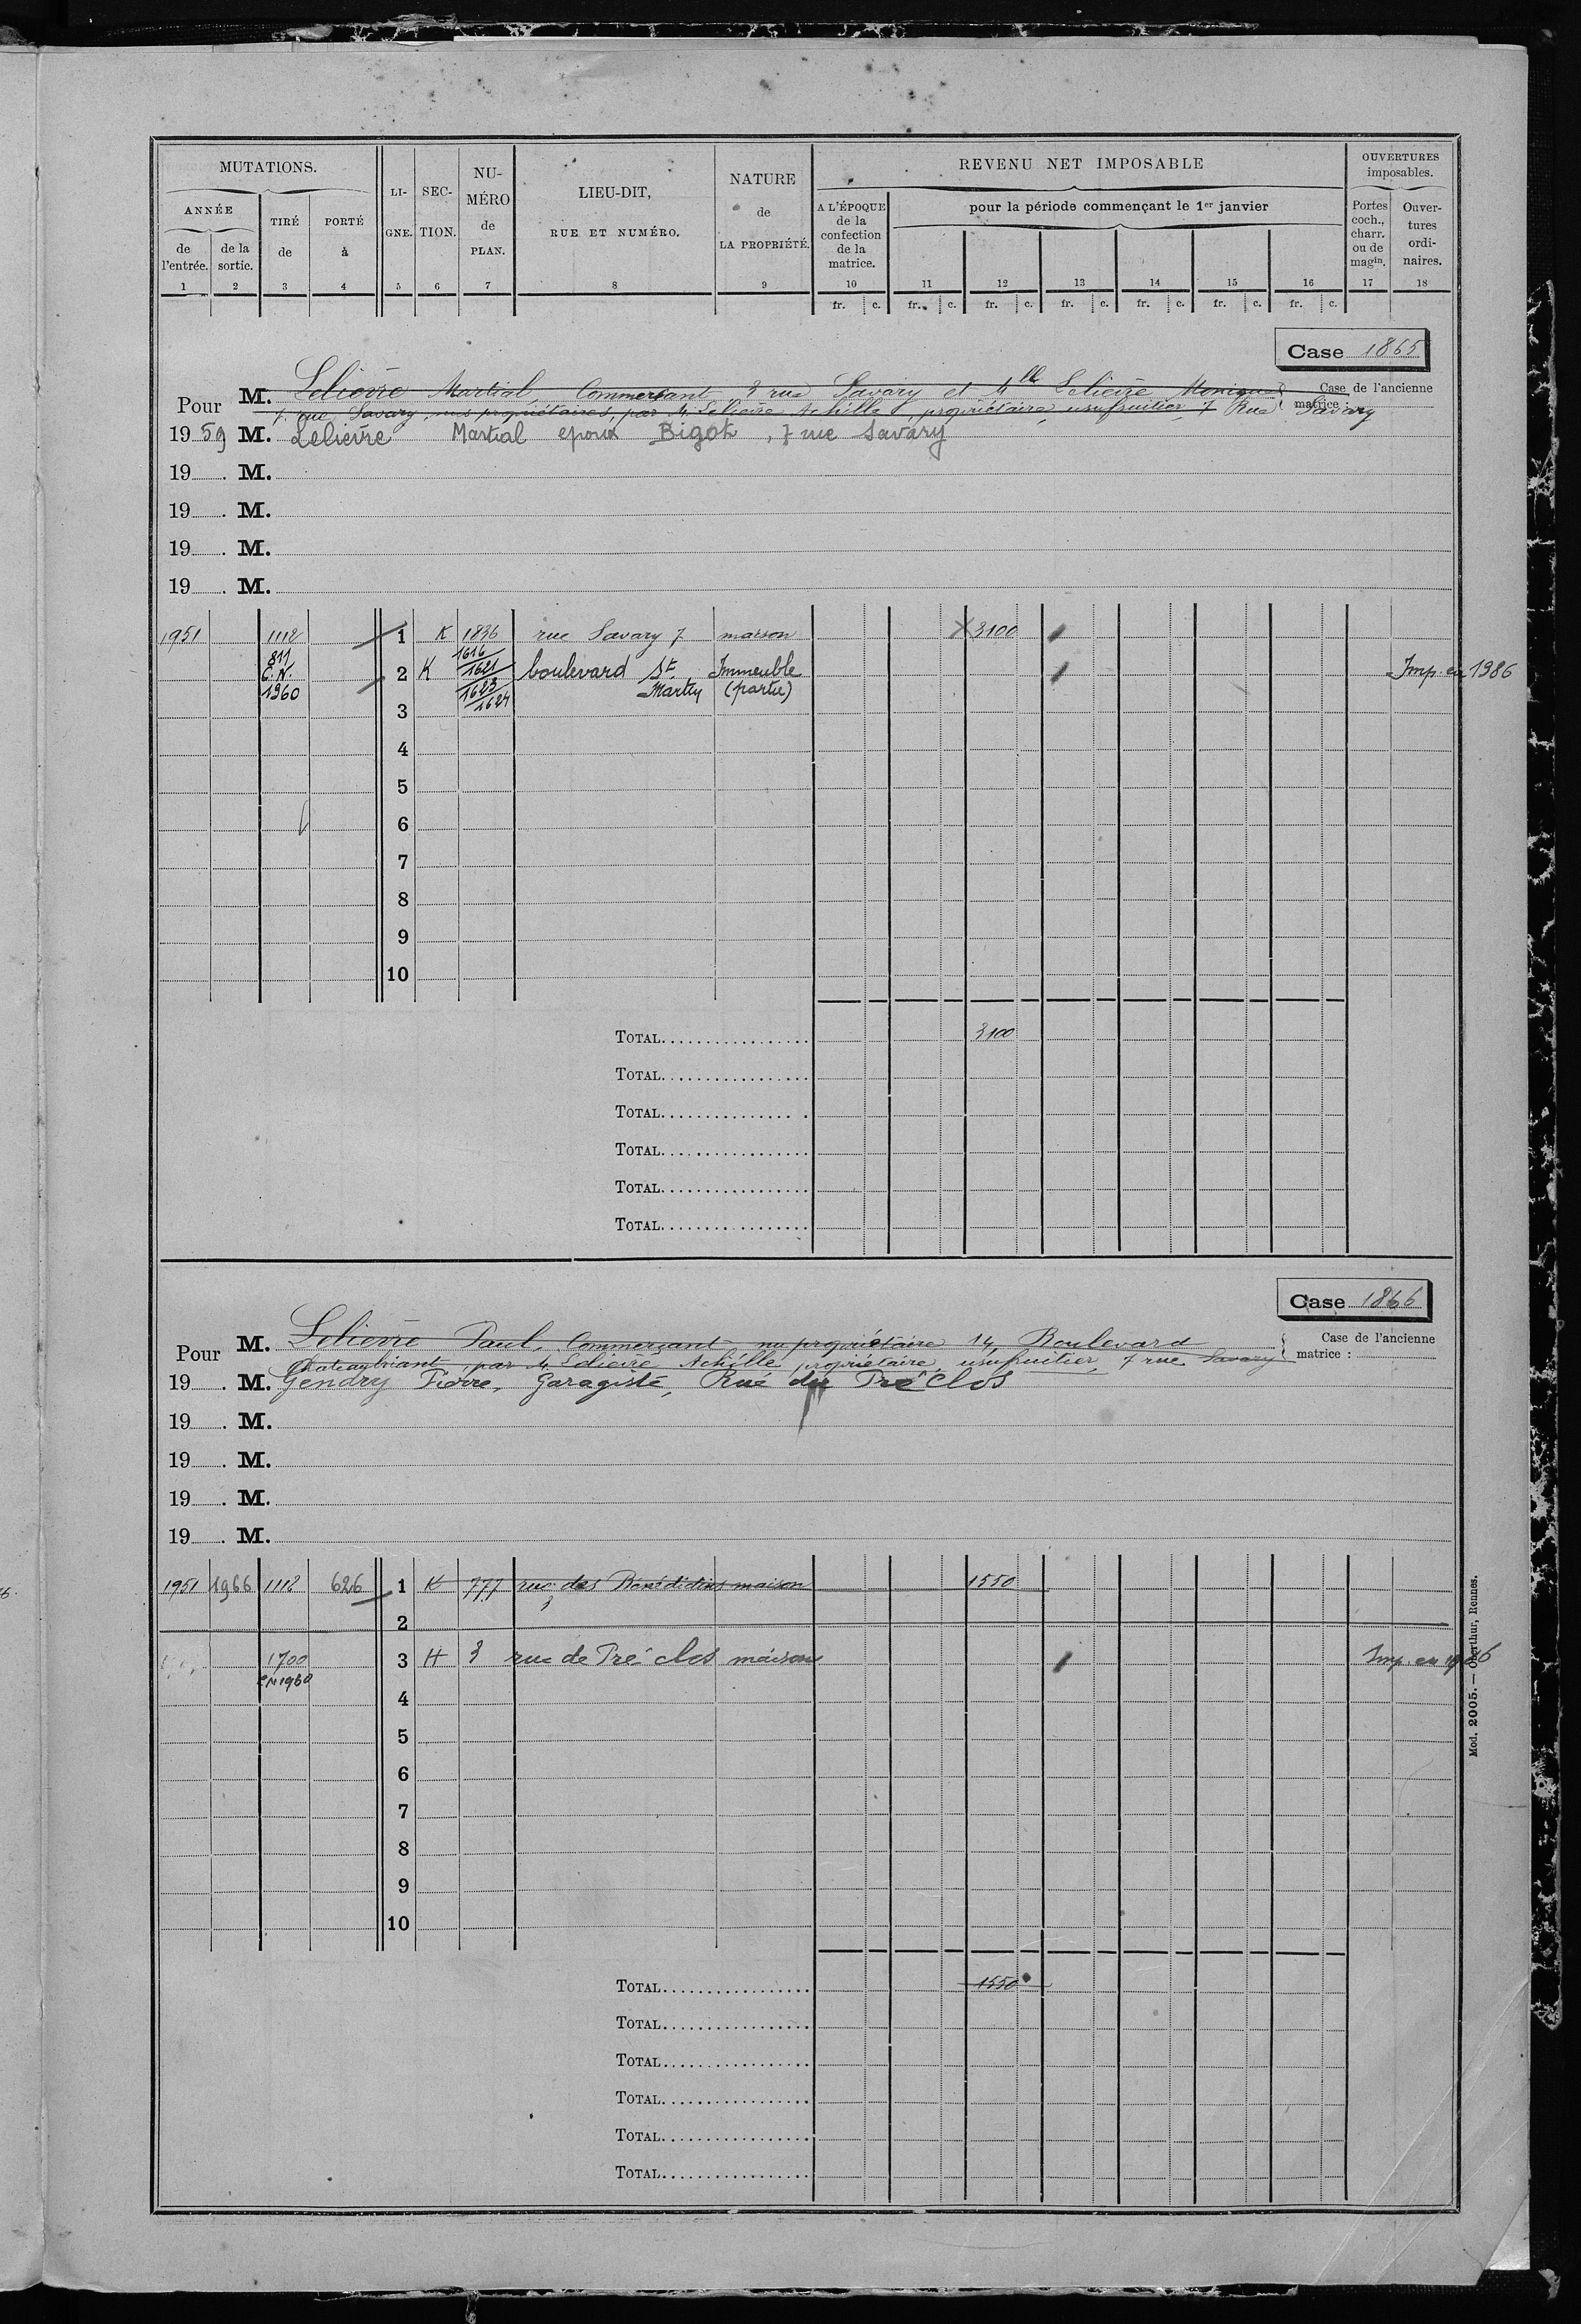 MUTATIONS.
ANNÉE
de l'entrée.
de la sortie.
TIRÉ de
PORTÉ à
LIGNE.
SECTION.
NUMÉRO de PLAN.
LIEU-DIT,
RUE ET NUMÉRO.
NATURE
de
LA PROPRIÉTÉ.
REVENU NET IMPOSABLE
A L'ÉPOQUE
de la
confection
de la
matrice.
pour la période commençant le 1er janvier
OUVERTURES
imposables.
Portes
coch.,
charr.
ou de
magin.
Ouver-
tures
ordi-
naires.
1 2 3 4 5 6 7 8 9 10 11 12 13 14 15 16 17 18
fr. c. fr. c. fr. c. fr. c. fr. c. fr. c. fr. c.
Case 1865
Pour M. Lelievre Martial, Commerçant 3 rue Savary et Mlle Lelievre Monique
Case de l'ancienne
matrice :
7 rue Savary, nus propriétaires, par M. Lelievre Achille, propriétaire, usufruitier 7 Rue Savary
1959 M. Lelievre Martial epoux Bigot, 7 rue Savary
19 . M.
19 . M.
19 . M.
19 . M.
1951 1112 1 K 1836 rue Savary 7 maison 3100
811 1616
C.N. 2 K 1621 boulevard St Immeuble Imp. en 1986
1960 1623 Martin (partie)
3 1624
4
5
6
7
8
9
10
TOTAL 3100
TOTAL
TOTAL
TOTAL
TOTAL
TOTAL
Case 1866
Pour M. Lelievre Paul, Commerçant nu propriétaire 14, Boulevard
Case de l'ancienne
matrice :
Chateaubriant, par M. Lelievre Achille, propriétaire, usufruitier, 7 rue Savary
19 . M. Gendry Pierre, Garagiste, Rue du Pré Clos
19 . M.
19 . M.
19 . M.
19 . M.
1951 1966 1112 626 1 K 777 rue des Bénédictins maison 1550
3
2
1700 3 H 3 rue de Pré clos maison Imp. en
CN 1960
4
5
6
7
8
9
10
TOTAL 1550
TOTAL
TOTAL
TOTAL
TOTAL
TOTAL
Mod. 2005. — Oberthur, Rennes.